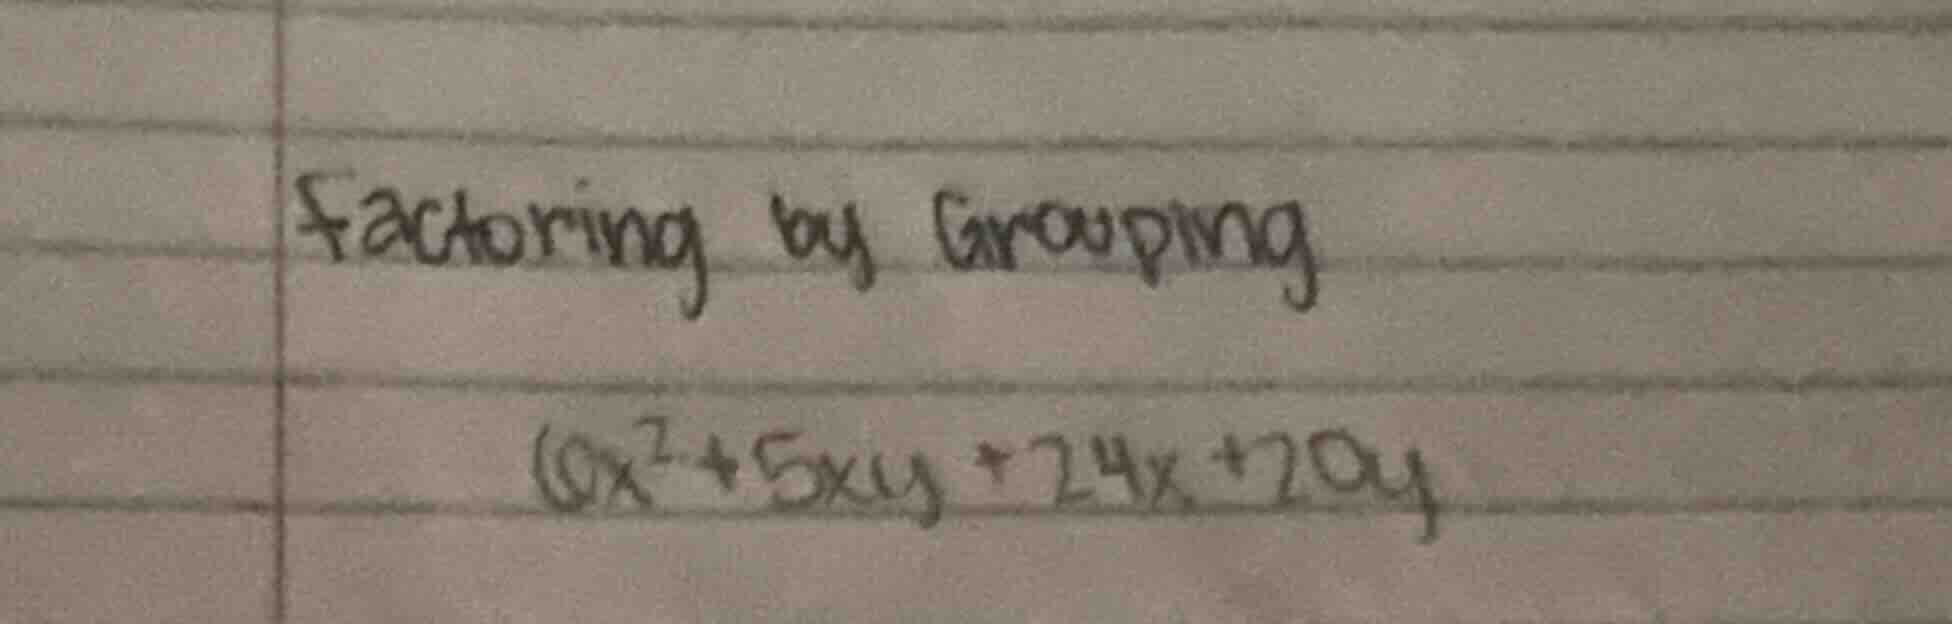 Factoring by Grouping
6x²+5xy+24x+20y